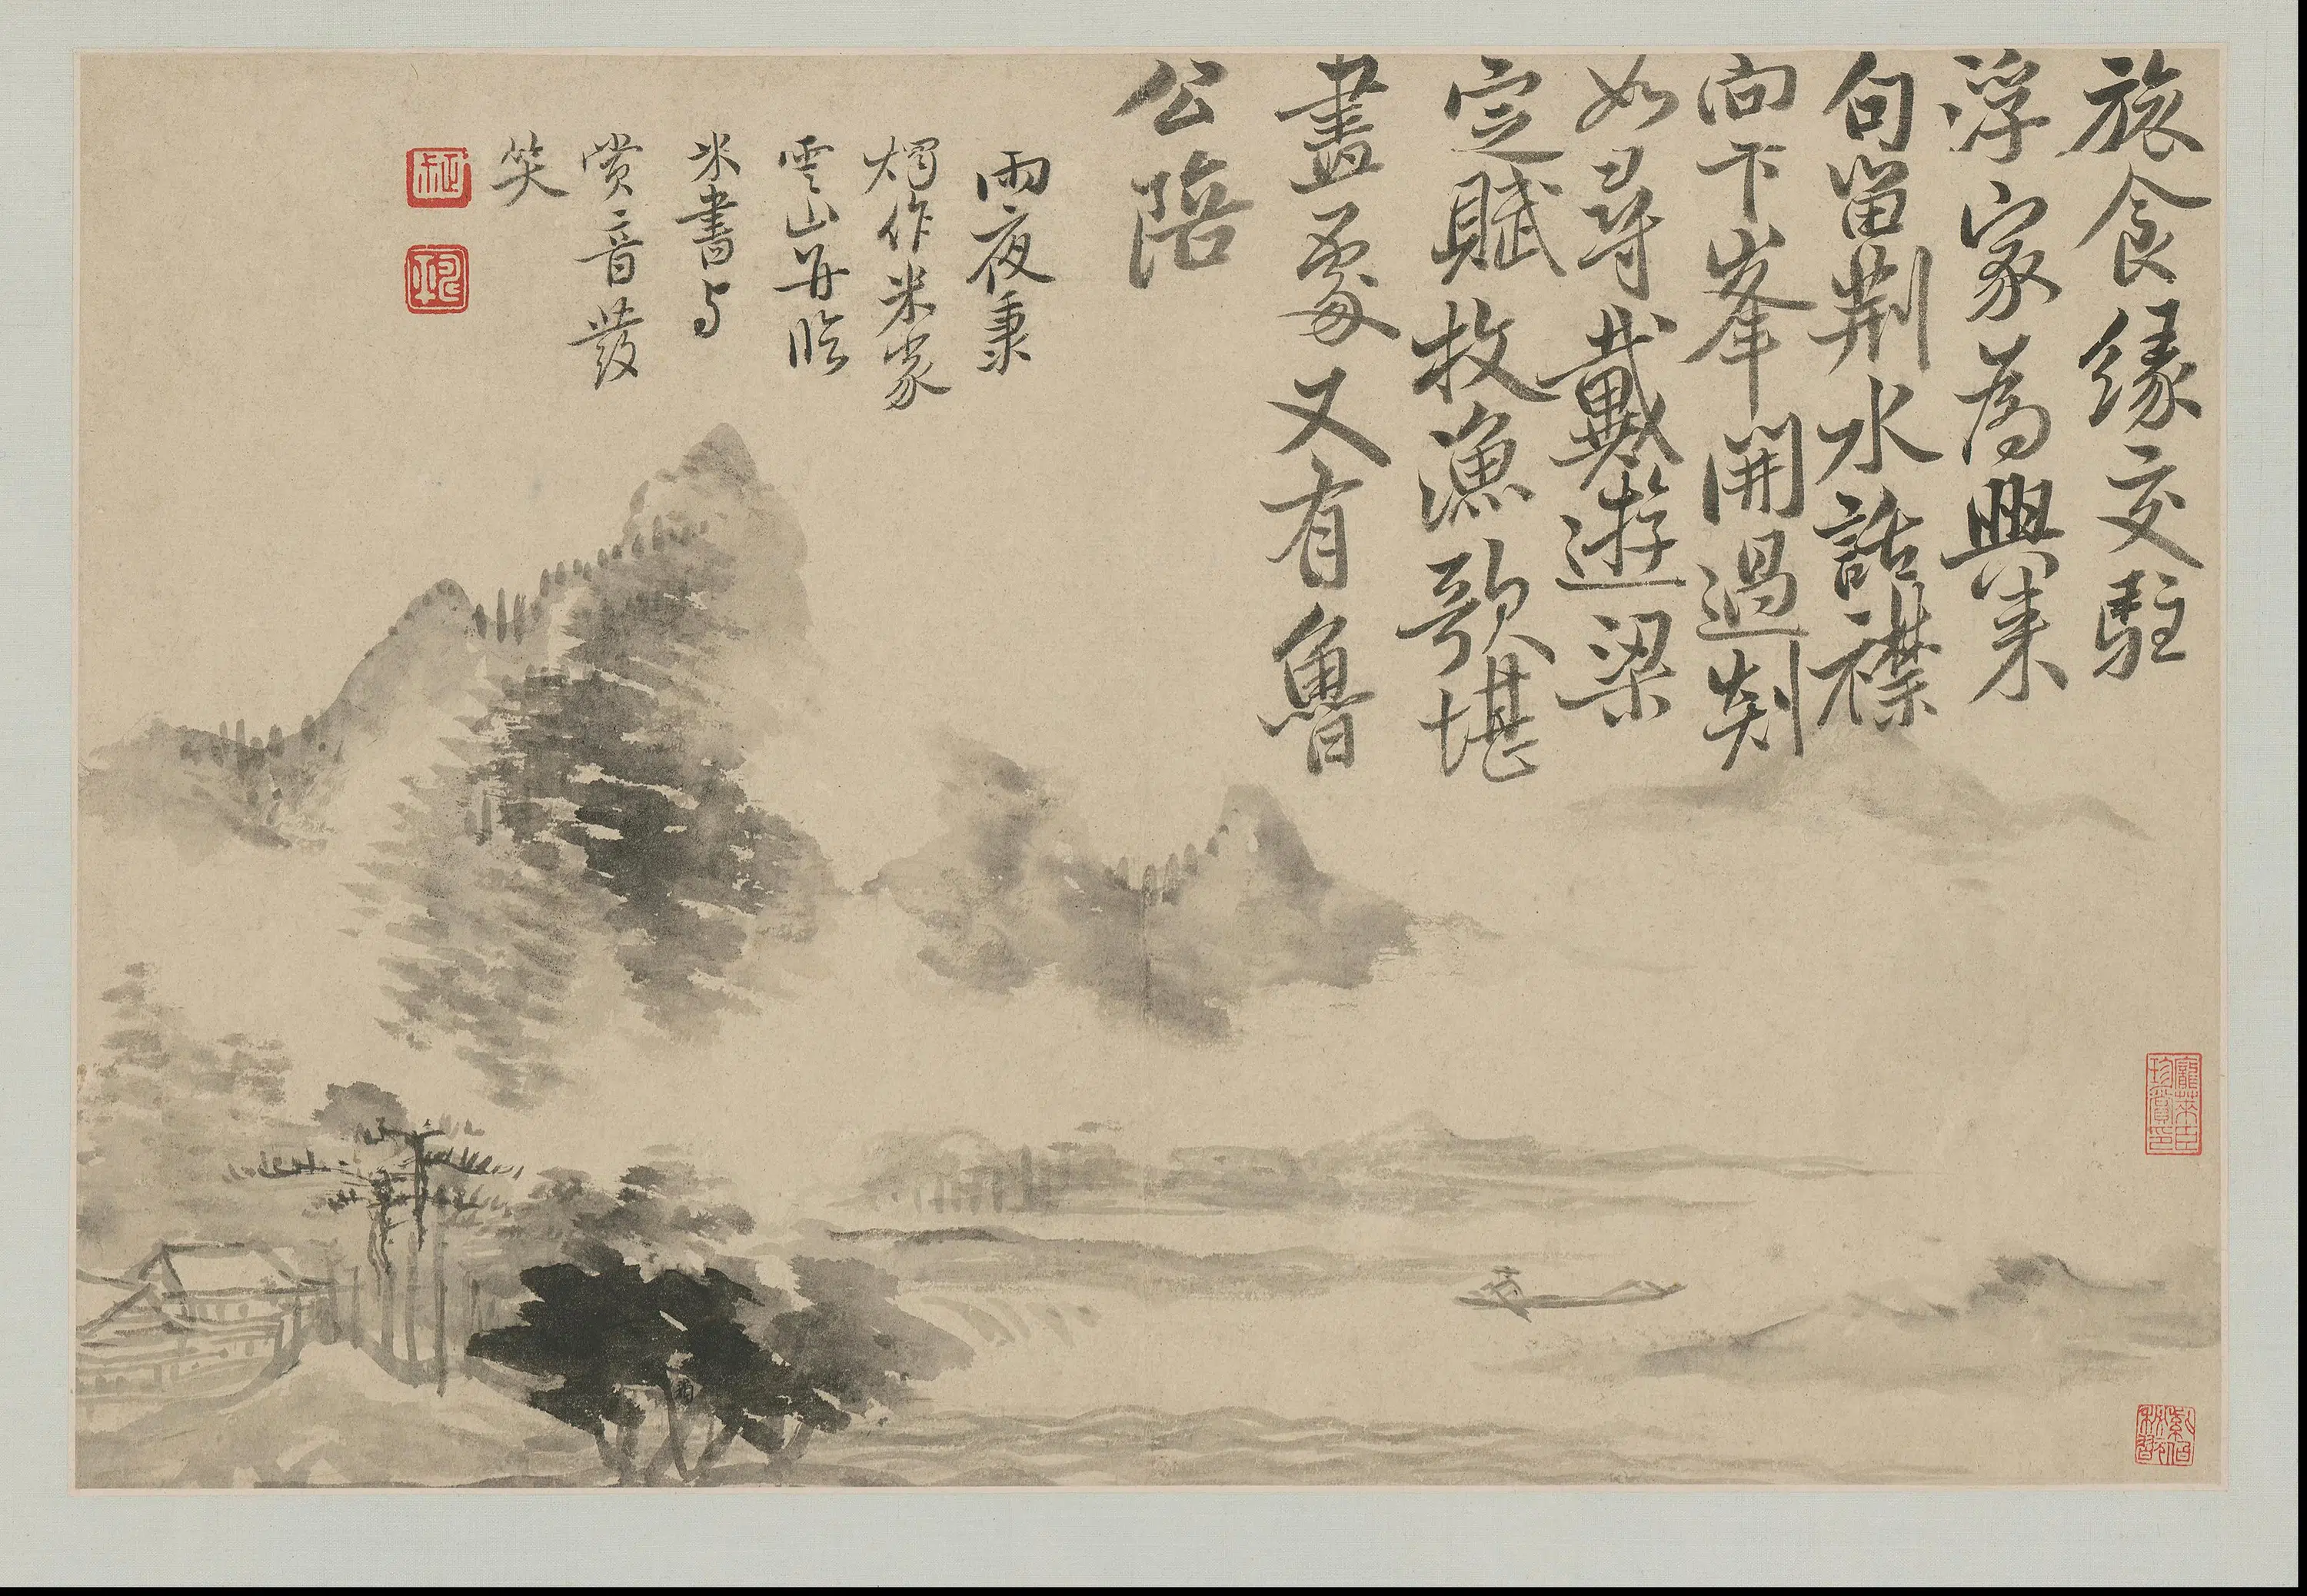 旅食緣交駐
浮家為興来
句留荆水話襟
向卞峯開過剡
如尋戴遊梁
定賦枚漁歌堪
畫處又有魯
公陪
雨夜秉
燭作米家
雲山并臨
米書与
賞音發
笑
龐萊臣
珍賞印